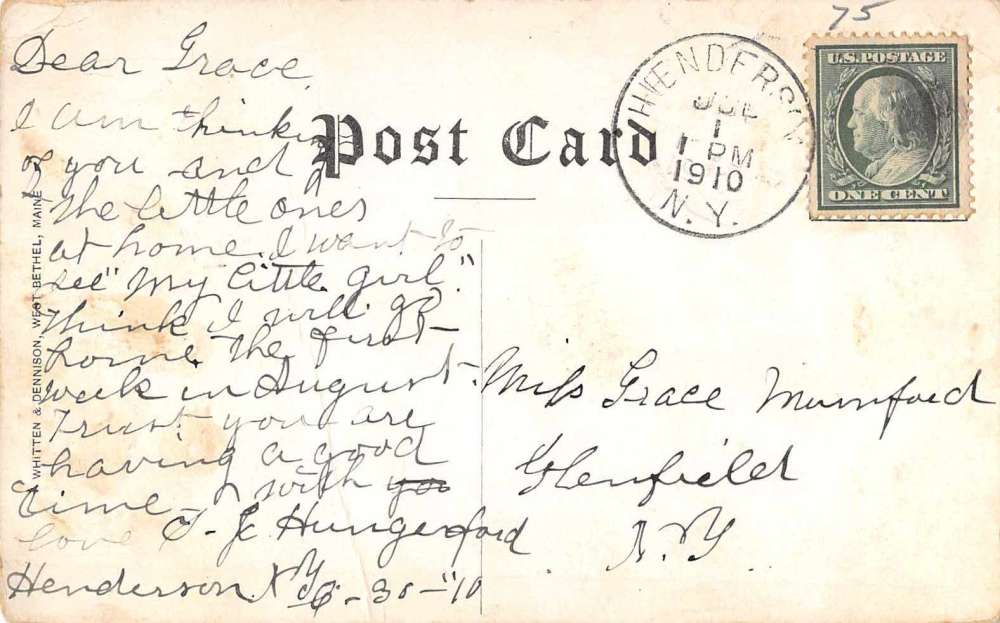 75
U.S. POSTAGE
ONE CENT
HENDERSON
JUL
1
1 PM
1910
N. Y.
Post Card
Dear Grace
I am thinking
of you and
the little ones
at home. I want to
see "My little girl".
Think I will go
home the first
week in August.
Trust you are
having a good
time - with you
love
Hungerford
Henderson N.Y. 6-30-"10
Miss Grace Mumford
Glenfield
N.Y
WHITTEN & DENNISON, WEST BETHEL, MAINE